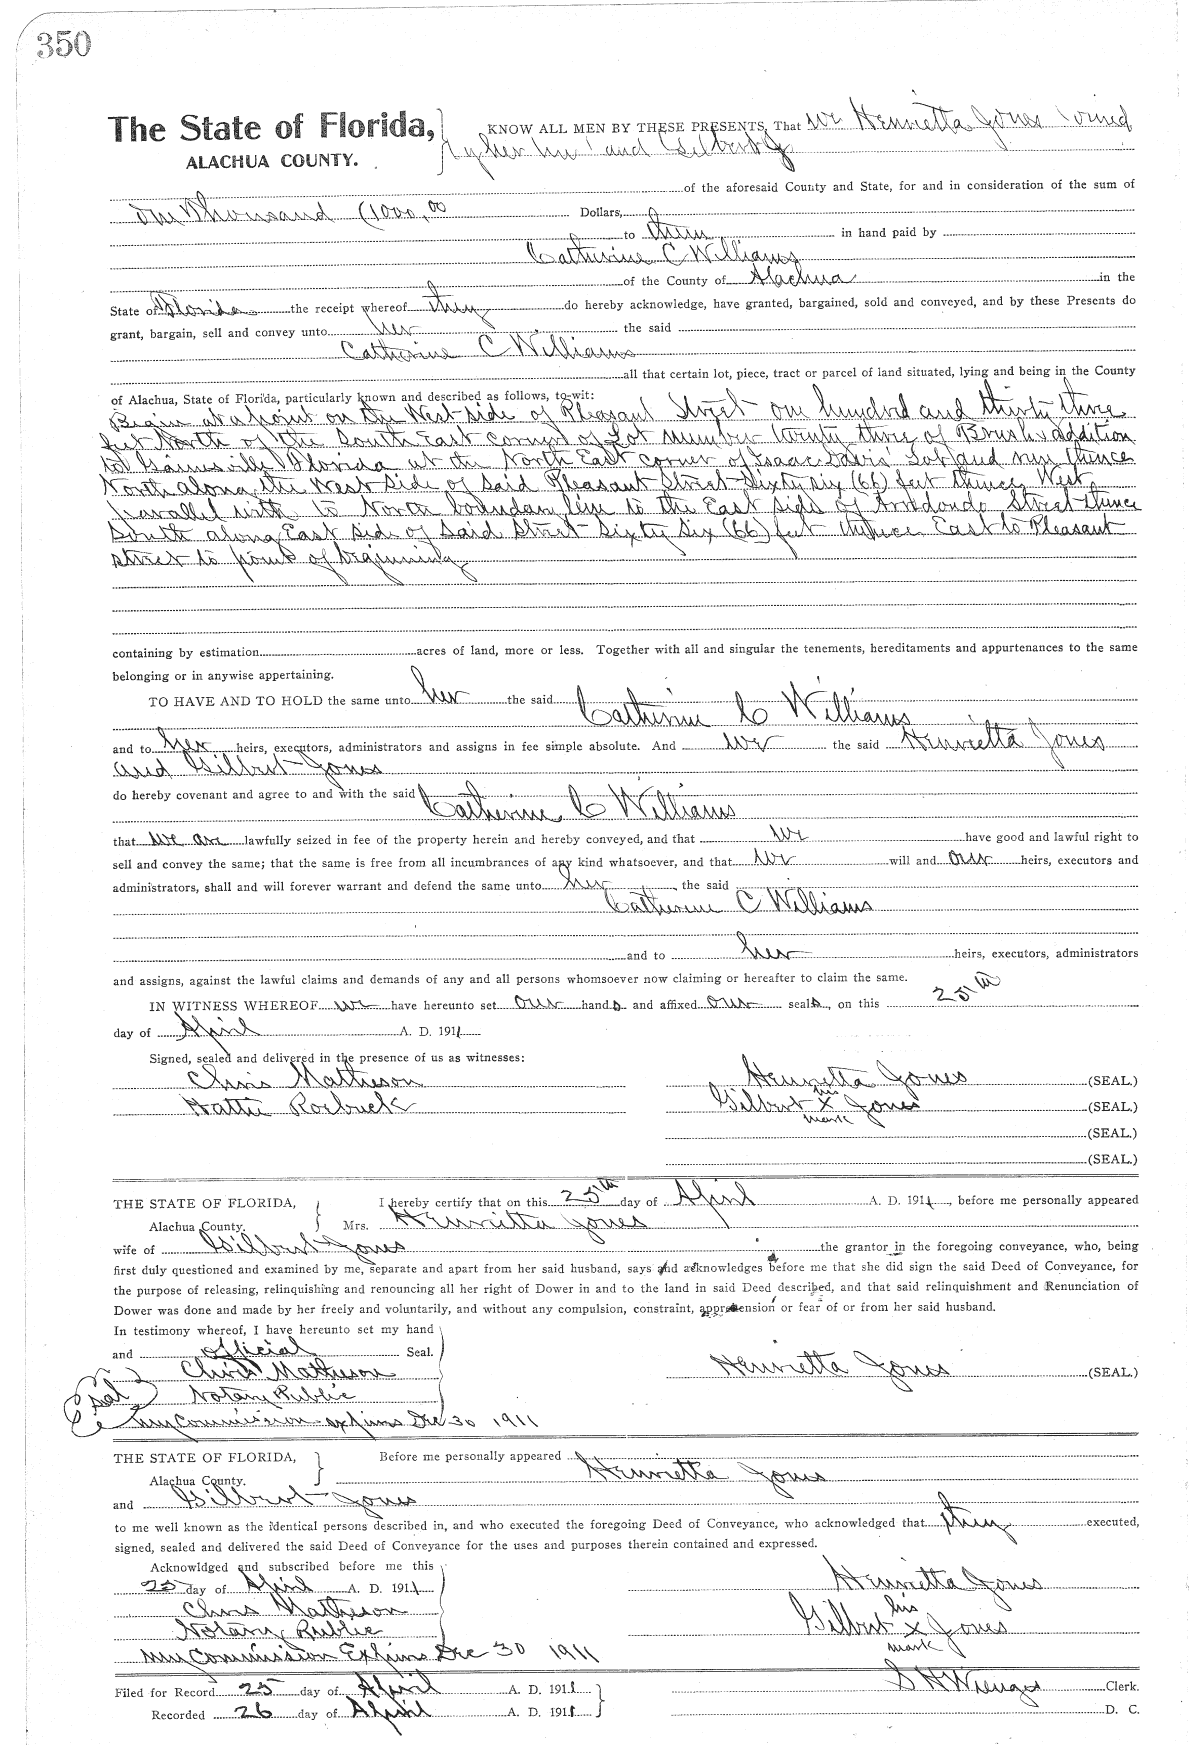 350
The State of Florida, KNOW ALL MEN BY THESE PRESENTS, That We Henrietta Jones joined
ALACHUA COUNTY. by her and Gilbert J
of the aforesaid County and State, for and in consideration of the sum of
One Thousand (1000.00 Dollars,
to them in hand paid by
Catherine C Williams
of the County of Alachua in the
State of Florida the receipt whereof they do hereby acknowledge, have granted, bargained, sold and conveyed, and by these Presents do
grant, bargain, sell and convey unto her the said
Catherine C Williams
all that certain lot, piece, tract or parcel of land situated, lying and being in the County
of Alachua, State of Florida, particularly known and described as follows, to-wit:
Begin at a point on the West side of Pleasant Street one hundred and thirty three
feet North of the South East corner of Lot number twenty three of Brush's addition
to Gainesville Florida at the North East corner of Isaac Davis' Lot and run thence
North along the West side of said Pleasant Street Sixty six (66) feet thence West
parallel with to North boundary line to the East side of Arredondo Street thence
South along East side of said Street Sixty Six (66) feet thence East to Pleasant
street to point of beginning
containing by estimation acres of land, more or less. Together with all and singular the tenements, hereditaments and appurtenances to the same
belonging or in anywise appertaining.
TO HAVE AND TO HOLD the same unto her the said Catherine C Williams
and to her heirs, executors, administrators and assigns in fee simple absolute. And we the said Henrietta Jones
and Gilbert Jones
do hereby covenant and agree to and with the said Catherine C Williams
that we are lawfully seized in fee of the property herein and hereby conveyed, and that we have good and lawful right to
sell and convey the same; that the same is free from all incumbrances of any kind whatsoever, and that we will and our heirs, executors and
administrators, shall and will forever warrant and defend the same unto her the said
Catherine C Williams
and to her heirs, executors, administrators
and assigns, against the lawful claims and demands of any and all persons whomsoever now claiming or hereafter to claim the same.
IN WITNESS WHEREOF we have hereunto set our hands and affixed our seals, on this 25th
day of April A. D. 1911
Signed, sealed and delivered in the presence of us as witnesses:
Chris Matheson Henrietta Jones (SEAL.)
his
Hattie Roebuck Gilbert X Jones (SEAL.)
mark
(SEAL.)
(SEAL.)
THE STATE OF FLORIDA, I hereby certify that on this 25th day of April A. D. 1911, before me personally appeared
Alachua County. Mrs. Henrietta Jones
wife of Gilbert Jones the grantor in the foregoing conveyance, who, being
first duly questioned and examined by me, separate and apart from her said husband, says and acknowledges before me that she did sign the said Deed of Conveyance, for
the purpose of releasing, relinquishing and renouncing all her right of Dower in and to the land in said Deed described, and that said relinquishment and Renunciation of
Dower was done and made by her freely and voluntarily, and without any compulsion, constraint, apprehension or fear of or from her said husband.
In testimony whereof, I have hereunto set my hand
and official Seal.
Chris Matheson Henrietta Jones (SEAL)
seal Notary Public
My Commission expires Dec 30 1911
THE STATE OF FLORIDA, Before me personally appeared Henrietta Jones
Alachua County.
and Gilbert Jones
to me well known as the identical persons described in, and who executed the foregoing Deed of Conveyance, who acknowledged that they executed,
signed, sealed and delivered the said Deed of Conveyance for the uses and purposes therein contained and expressed.
Acknowldged and subscribed before me this
25 day of April A. D. 1911 Henrietta Jones
Chris Matheson his
Notary Public Gilbert X Jones
My Commission Expires Dec 30 1911 mark
Filed for Record 25 day of April A. D. 1911 S H Wienges Clerk.
Recorded 26 day of April A. D. 1911 D. C.